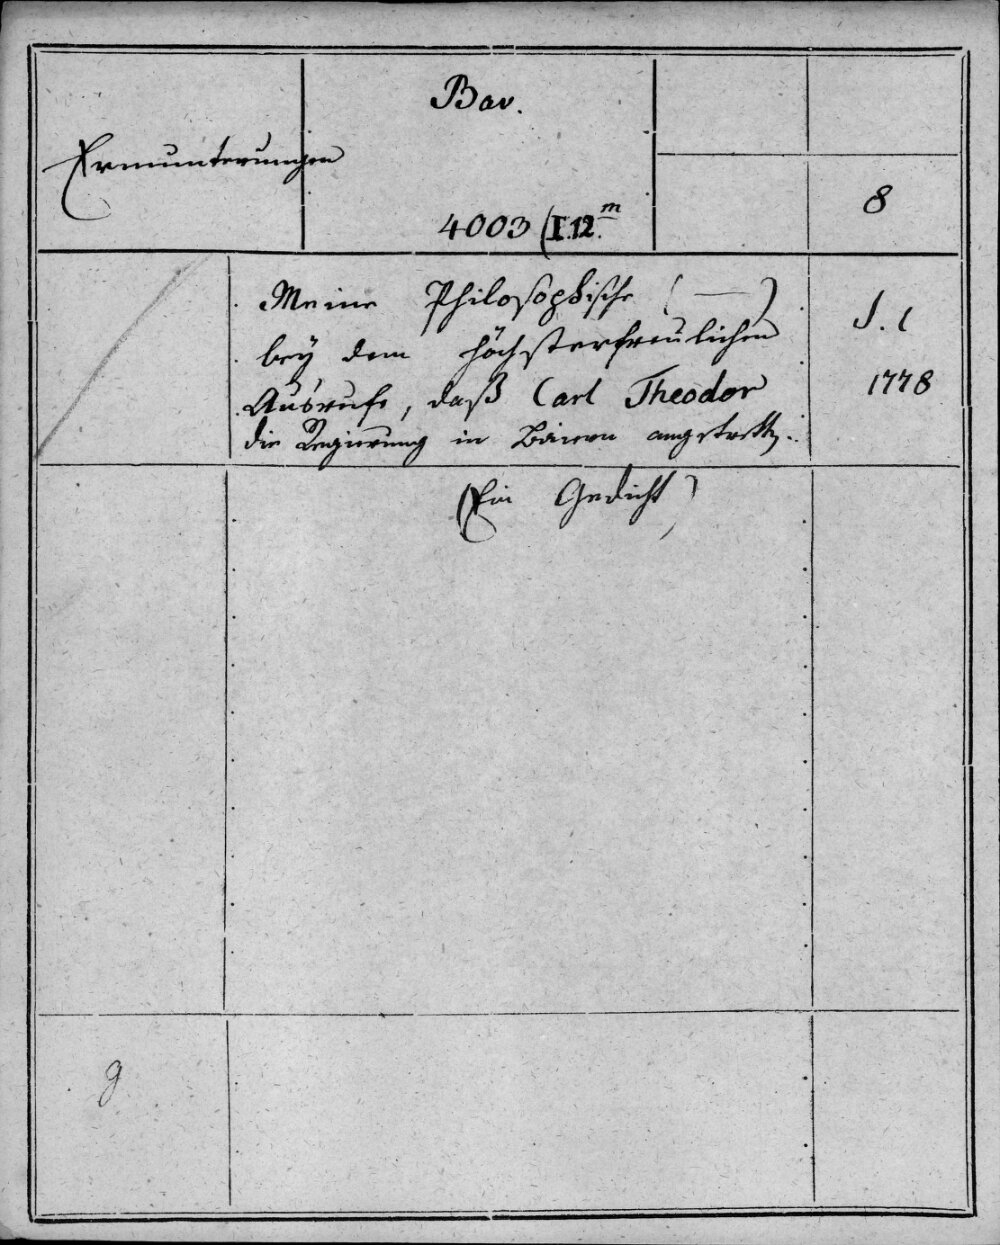 Bav.
Ermunterungen
8
4003 (I.12.m
Meine Philosophische ( — )
bey dem höchsterfreulichen
Ausrufe, daß Carl Theodor
die Regierung in Baiern angetrett.
S. l
1778
(Ein Gedicht)
g